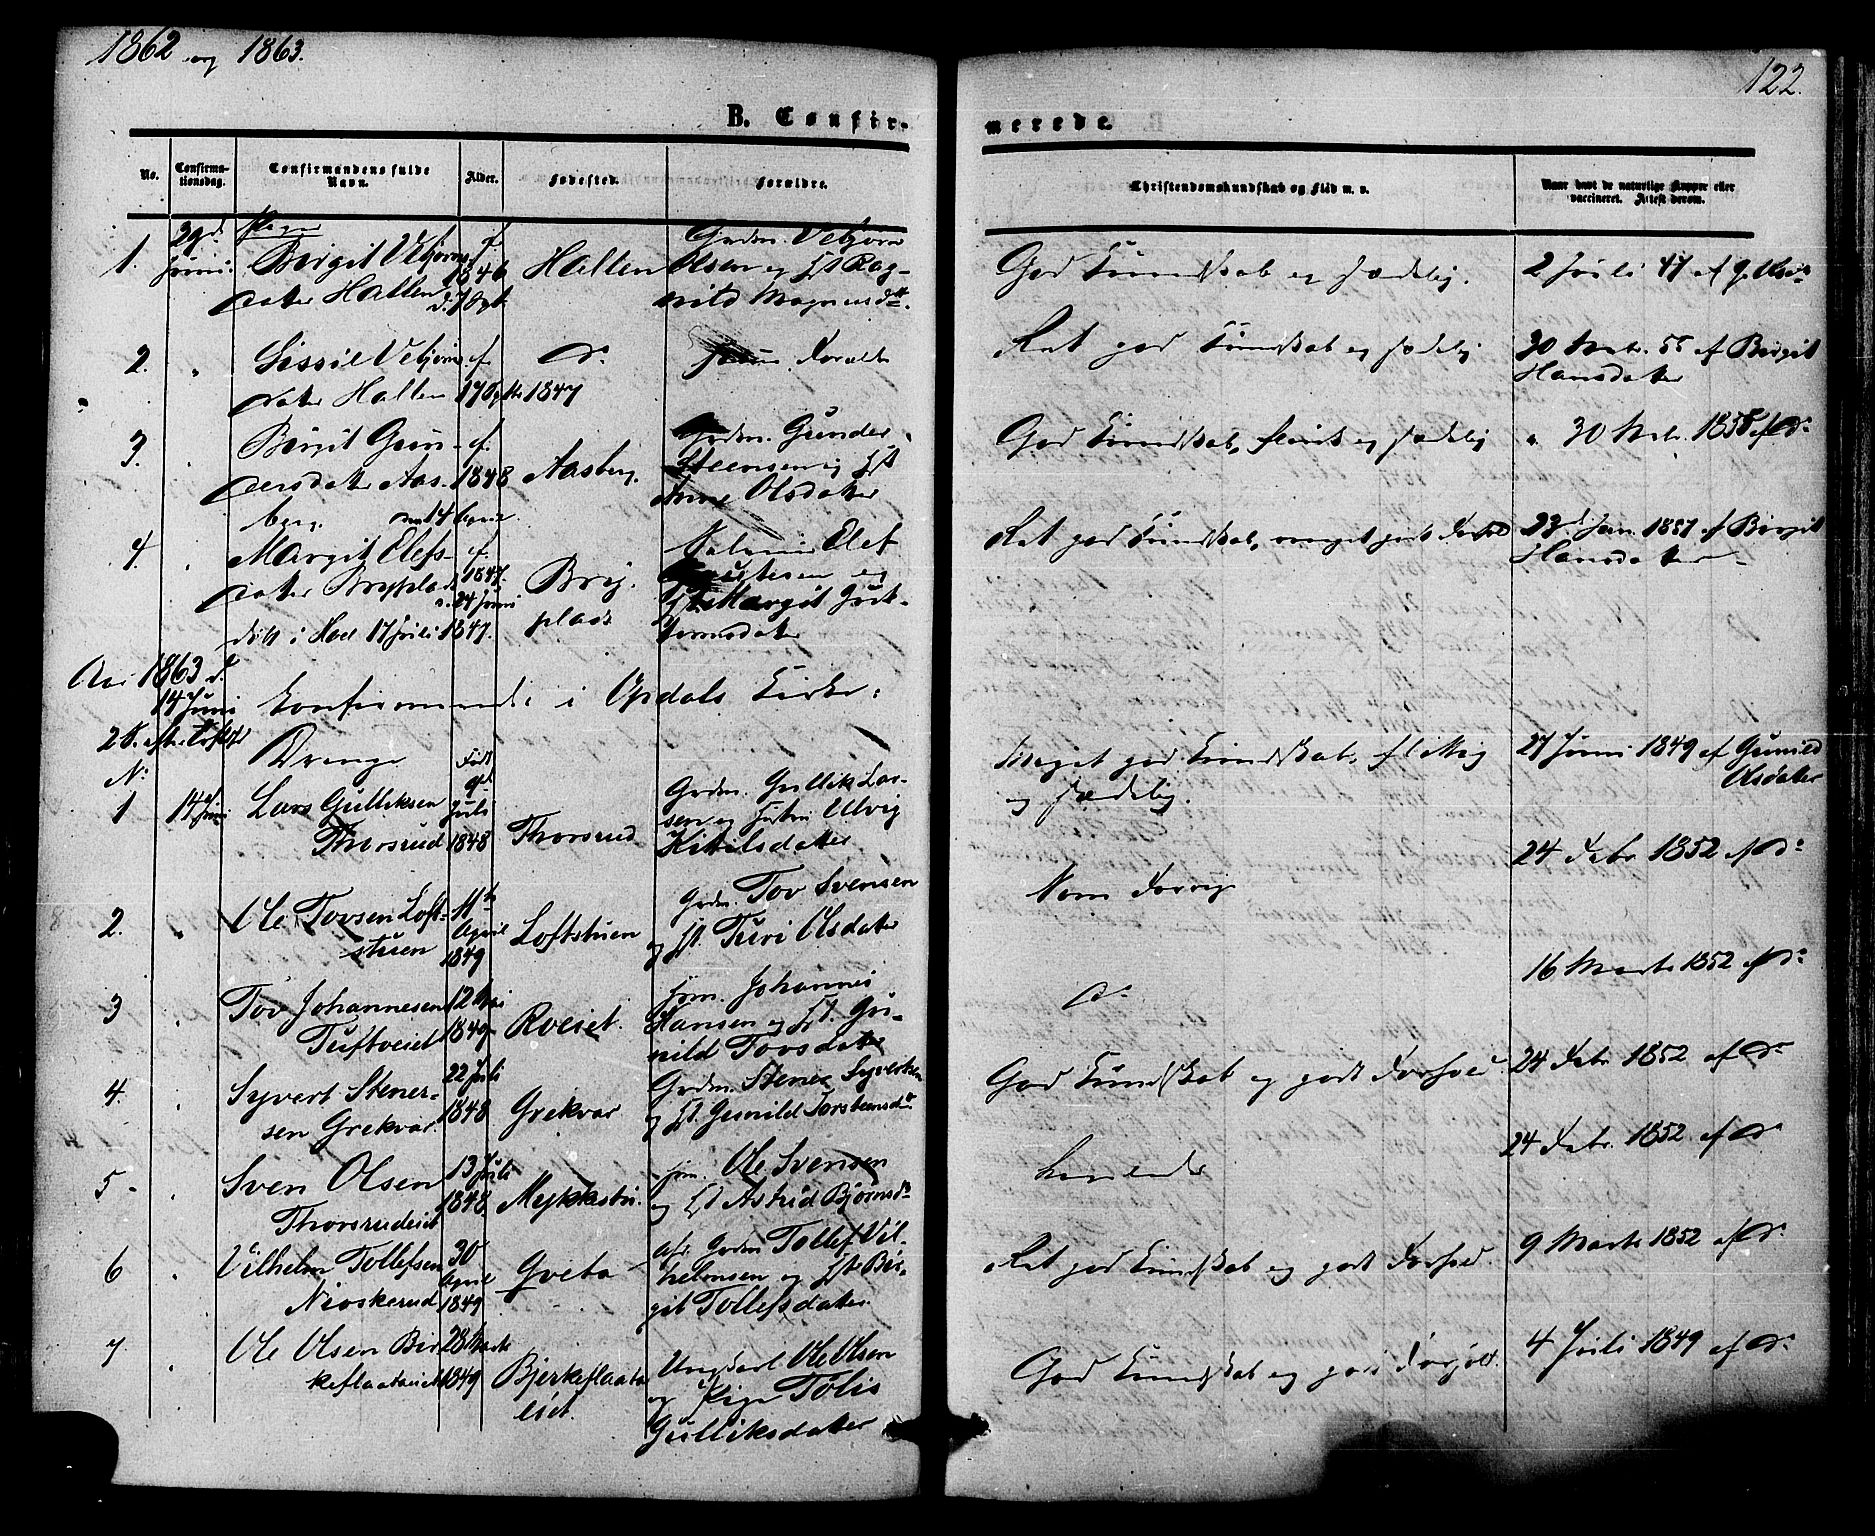 1862 og 1863.
122.
B. Confirmerede.
No.
Confirmationsdag.
Confirmandens fulde Navn.
Alder.
Fødested.
Forældre.
Christendomskundskab og Flid m. v.
Naar havt de naturlige Kopper eller vaccineret. Attest derom.
29de Juni.
Piger
1. Birgit Vebjørns-
dater Hallen
f. 1846
d. 7 Sept
Hallen
Grdm. Vebjørn
Olsen og Hst Rag-
nild Magnusdtr.
God Kundskab og sædelig.
2 Juli 47 af
2. Sissil Vebjørns-
dater Hallen
f. 17 Septbr 1847
do.
Forældre
Ret god Kundskab og sædelig
30 Septbr. 55 af Birgit
Hansdater
3. Birgit Gun-
dersdater Aas-
berg.
f. 1848
den 14 April
Aasberg.
Grdm. Gunder
Steensen og Hst
Anne Olsdater
God Kundskab, flink og sædelig
30 1855 af do.
4. Margit Elefs-
dater Brypladds
f. 1847.
24 Juni
døbt i Hod 17 Juli 1847.
Bryplads
Elef
Knutesen og
Hst Margit Gut-
tormsdater
Ret god Kundskab, meget godt Forhold
23d Jan. 1857 af Birgit
Hansdater
Aar 1863 d.
14 Juni
2 S. efter
Confirmerede i Opdals Kirke:
No.
Drenge
Født
1 14 Juni
Lars Gulliksen
Thorsrud
9d Juli 1848
Thorsrud
Grdm. Gullik Lar-
sen og Hustru Ulvig
Kitilsdatter
Meget god Kundskab, flittig
og sædelig.
27 Juni 1849 af Gunild
Olsdater
2. Ole Tovsen Loft-
stuen
11te April 1849
Loftstuen
Grdm. Tov Svensen
og Hst. Turi Olsdater
Som Forrige
24 Febr 1852 af do.
3 Tov Johannesen
Tuftveiet
12 Mai 1849
Rveiet.
Hsm. Johannes
Hansen og Hst. Gu-
nild Tovsdatter
do.
16 Marts 1852 af do.
4. Syvert Stener-
sen Grekvar
22 Juli 1848
Grekvar
Grdm. Stener Syvertsen
og Hst. Gunild Torstensdtr
God Kundskab og godt Forhold.
24 Febr 1852 af do.
5 Sven Olsen
Thorsrudeiet
13 Juli 1848
Mykkestu.
Hsm. Ole Svensen
og Hst Astrid Bjørnsdr
24 Febr. 1852 af do.
6 Vilhelm Tollefsen
Nioskerud
30 April 1849
Gveta
Grdm Tollef Vil-
helmsen og Hst Bir-
git Tollefsdater.
Ret god Kundskab og godt Forhold.
9 Marts 1852 af do.
7 Ole Olsen Bir-
keflaataeiet
28 Marts 1849
Bjerkeflaata-
eiet.
Ungkarl Ole Olsen
og Pige Tolis
Gulliksdatter
God Kundskab og godt Forhold.
4 Juli 1849 af do.